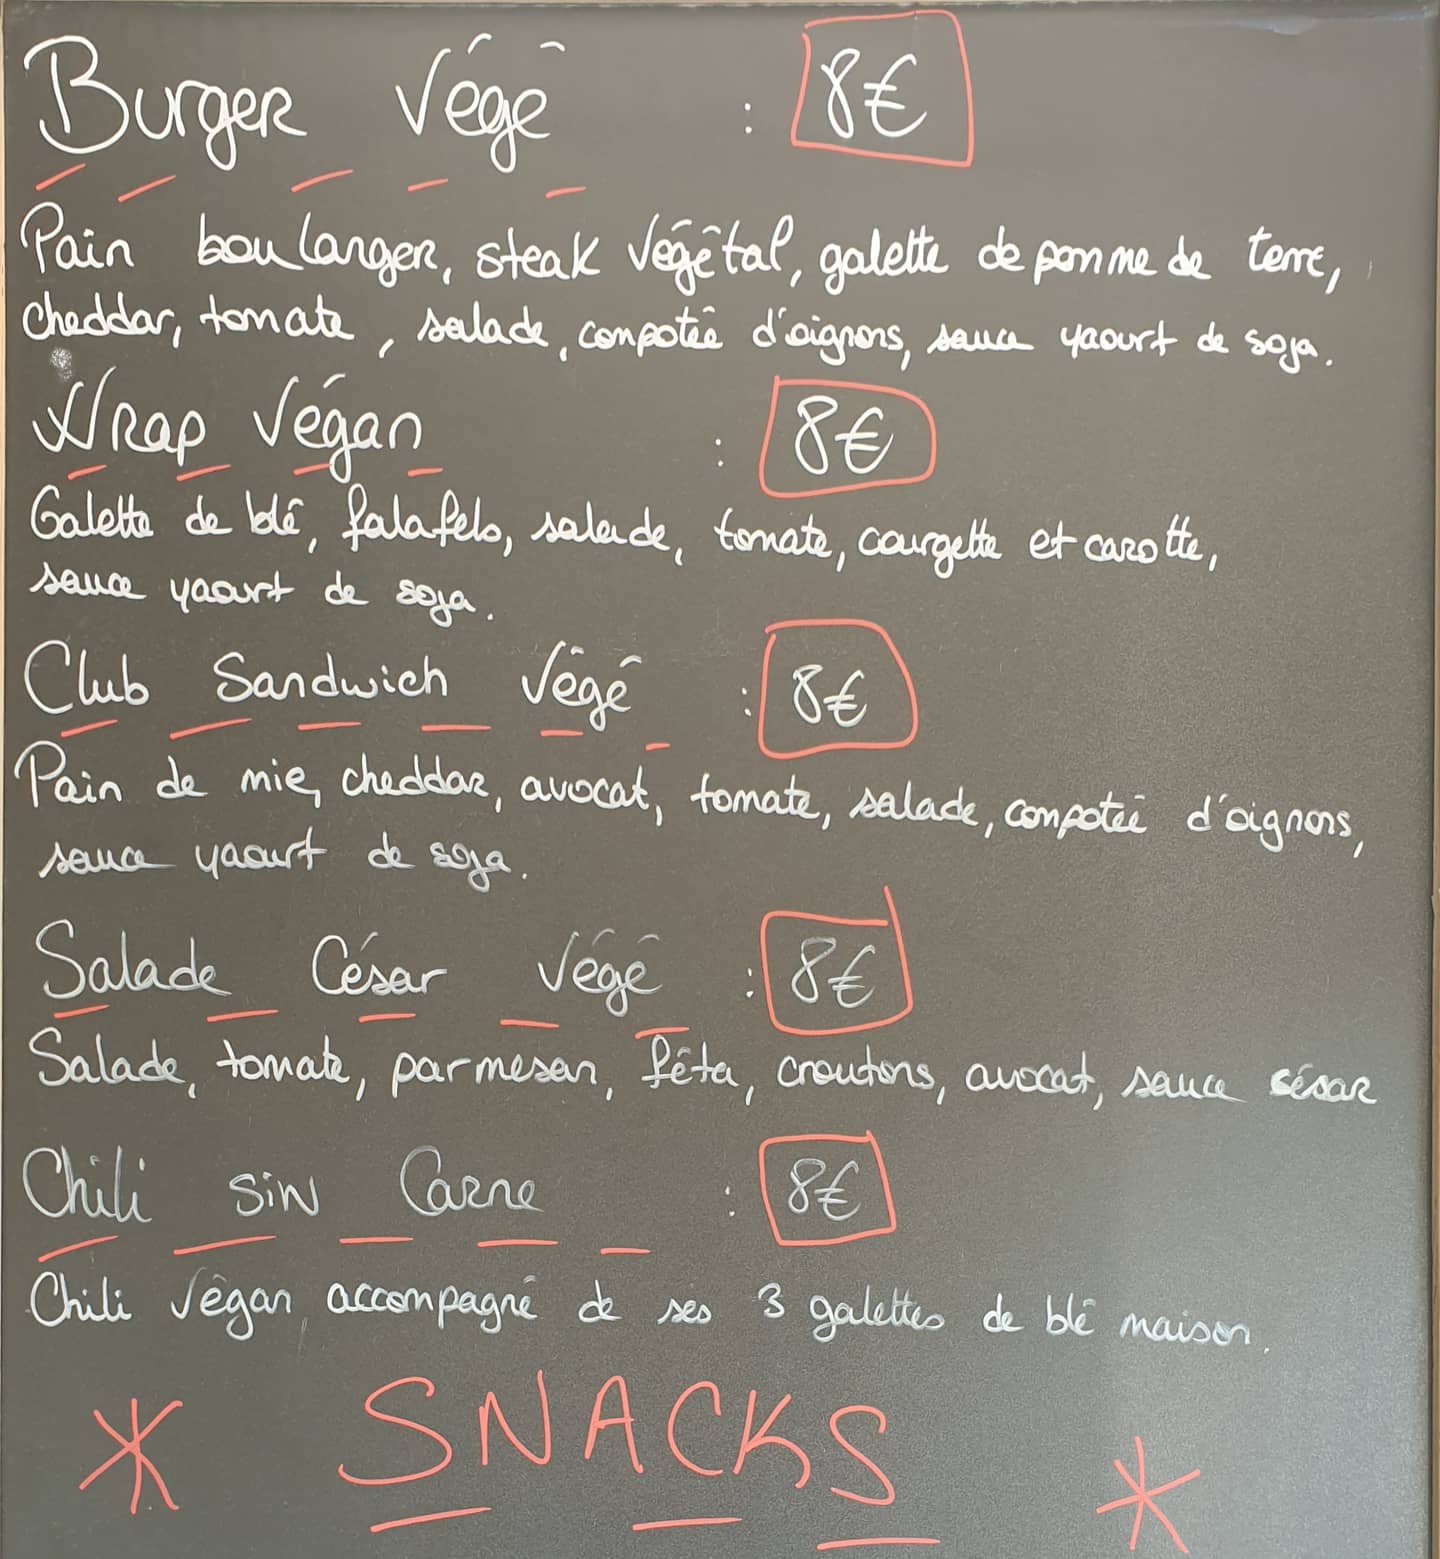 Burger Végé : 8€
Pain boulanger, steak végétal, galette de pomme de terre,
cheddar, tomate, salade, compotée d'oignons, sauce yaourt de soja.
Wrap Végan : 8€
Galette de blé, falafels, salade, tomate, courgette et carotte,
sauce yaourt de soja.
Club Sandwich Végé : 8€
Pain de mie, cheddar, avocat, tomate, salade, compotée d'oignons,
sauce yaourt de soja.
Salade César Végé : 8€
Salade, tomate, parmesan, fêta, croutons, avocat, sauce césar
Chili sin Carne : 8€
Chili végan accompagné de ses 3 galettes de blé maison.
* SNACKS *